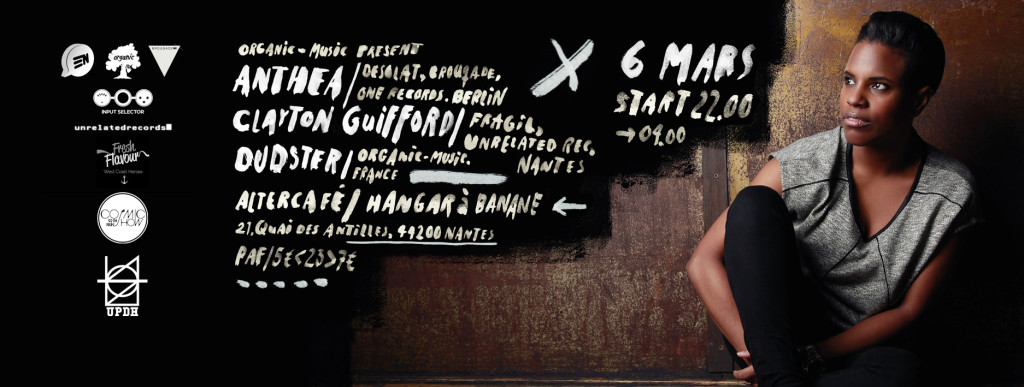 ORGANIC-MUSIC PRESENT
ANTHEA/
DESOLAT, CROUZADE,
ONE RECORDS. BERLIN
CLAYTON GUIFFORD/
FRAGIL,
UNRELATED REC.
NANTES
DUDSTER/
ORGANIC-MUSIC.
FRANCE
ALTERCAFÉ/ HANGAR à BANANE ←
21, QUAI DES ANTILLES, 44200 NANTES
PAF/5€<23>7€
X
6 MARS
START 22.00
→04.00
EN
organic
INPUT SELECTOR
unrelatedrecords
Fresh
Flavour
West Coast Heroes
COSMIC
SHOW
UPDH